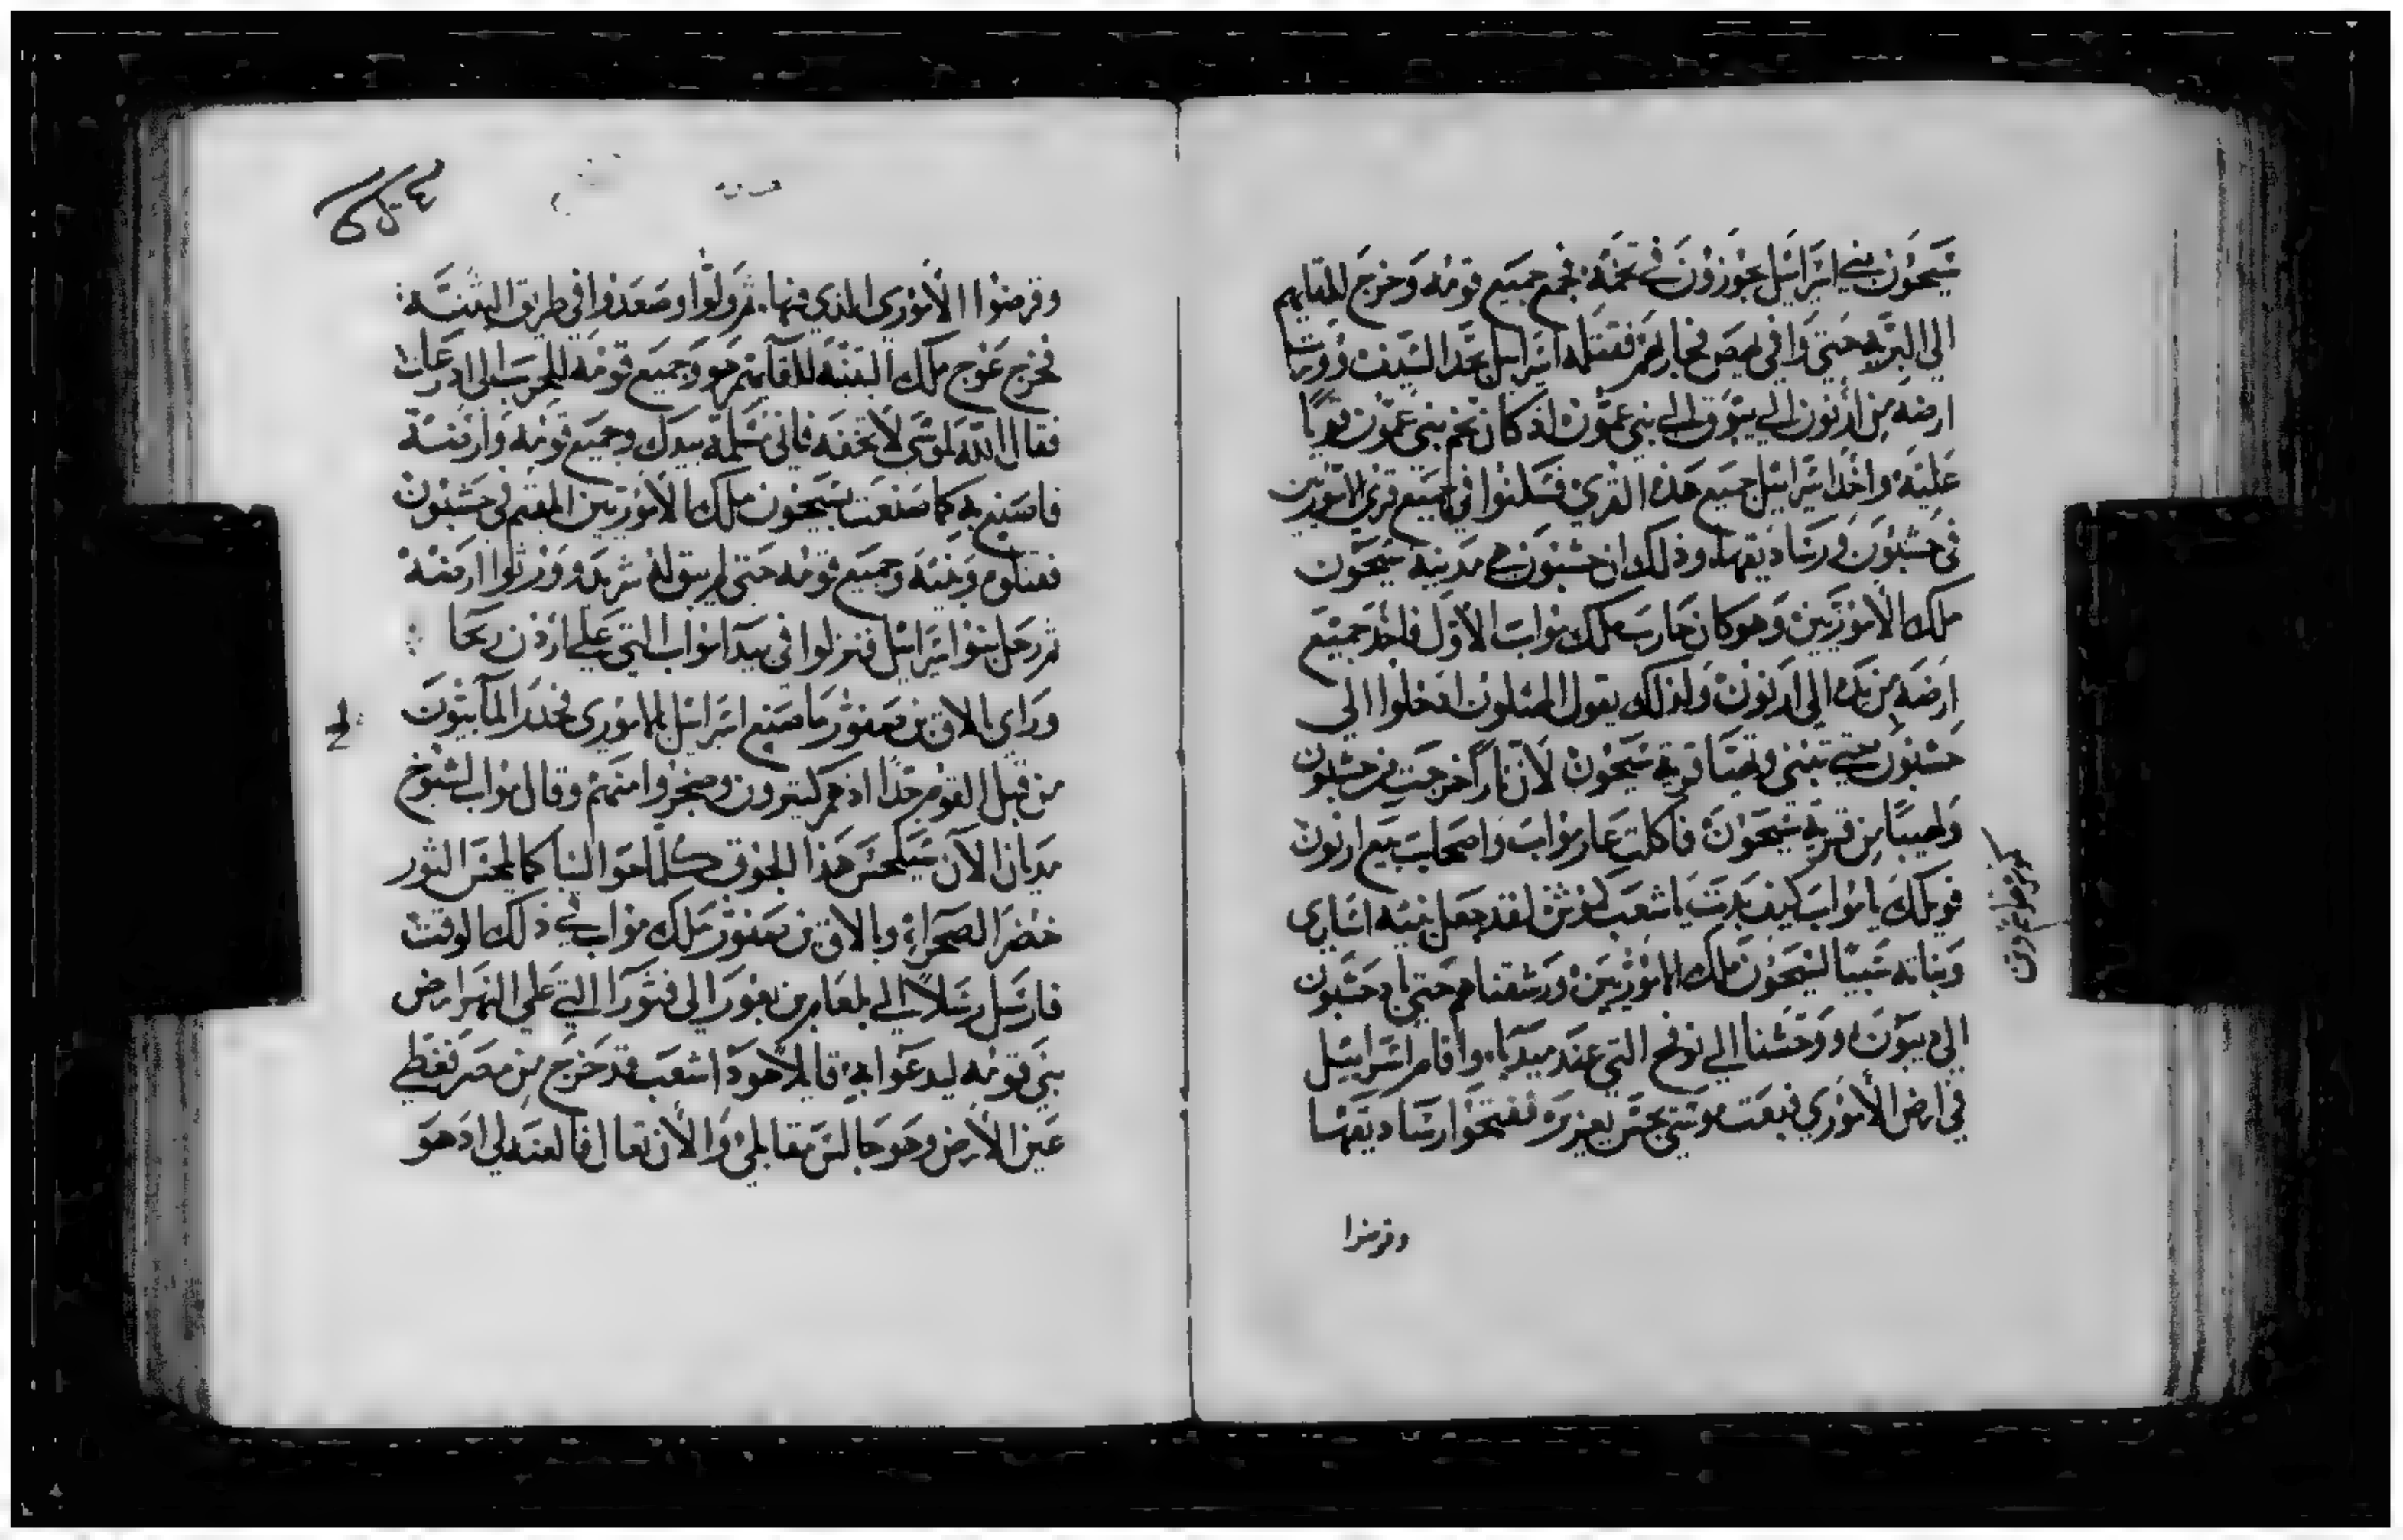 سيحون بني اسرائيل يجوزون في تخمه فجمع جميع قومه وخرج للقايهم
الى البريه حتى وافى يهص فحاربهم فقتله اسرائيل بحد السيف وورث
ارضه من ارنون الى يبوق الى بني عمون اذ كان تخم بني عمون قويا
عليه واخذ اسرائيل جميع هذه القرى فسكنوا في جميع قرى الامورين
في حشبون ورساديقها وذلك ان حشبون هي مدينة سيحون
ملك الامورين وهو كان حارب ملك مواب الاول فاخذ جميع
ارضه من يده الى ارنون ولذلك يقول المثلون ادخلوا الى
حشبون حتى تبنى وتهيا قرية سيحون لان نارا خرجت من حشبون
ولهيبا من قرية سيحون فاكلت عار مواب واصحاب بيع ارنون
فويلك يا مواب كيف بدت يا شعب كموش لقد جعل بنيه اسارى
وبناته سبيا لسيحون ملك الامورين ورشقناهم حتى باد حشبون
الى ديبون واوحشنا الى نوفح التي عند ميدبا واقام اسراييل
في ارض الاموري فبعث موسى بجس يعزير ففتحوا رساديقها
وقرضوا
وقرضوا الاموري الذي فيها ثم ولوا وصعدوا في طريق البثنية
فخرج عوج ملك البثنية للقايهم هو وجميع قومه للحرب الى ادرعات
فقال الله لموسى لا تخفه فاني مسلمه بيدك وجميع قومه وارضه
فاصنع به كما صنعت بسيحون ملك الامورين المقيم في حشبون
فقتلوه وبنيه وجميع قومه حتى لم يبق له شريد وورثوا ارضه
ثم رحل بنوا اسرائيل فنزلوا في بيدا مواب التي على اردن ريحا
وراى بالاق بن صفور ما صنع اسرائيل بالاموري فحذر المآبيون
من قبل القوم جدا اذ هم كثيرون وضجروا منهم وقال مواب لشيوخ
مديان الان سيلحس هذا الجوق كلما حوالينا كما يلحس الثور
خضر الصحراء وبالاق بن صفور ملك مواب في ذلك الوقت
فارسل رسلا الى بلعام بن بعور الى فثورا التي على النهر ارض
بني قومه ليدعوا به قايلا هوذا شعب قد خرج من مصر فغطى
عين الارض وهو جالس مقابلي والان تعال فالعنه لي اذ هو